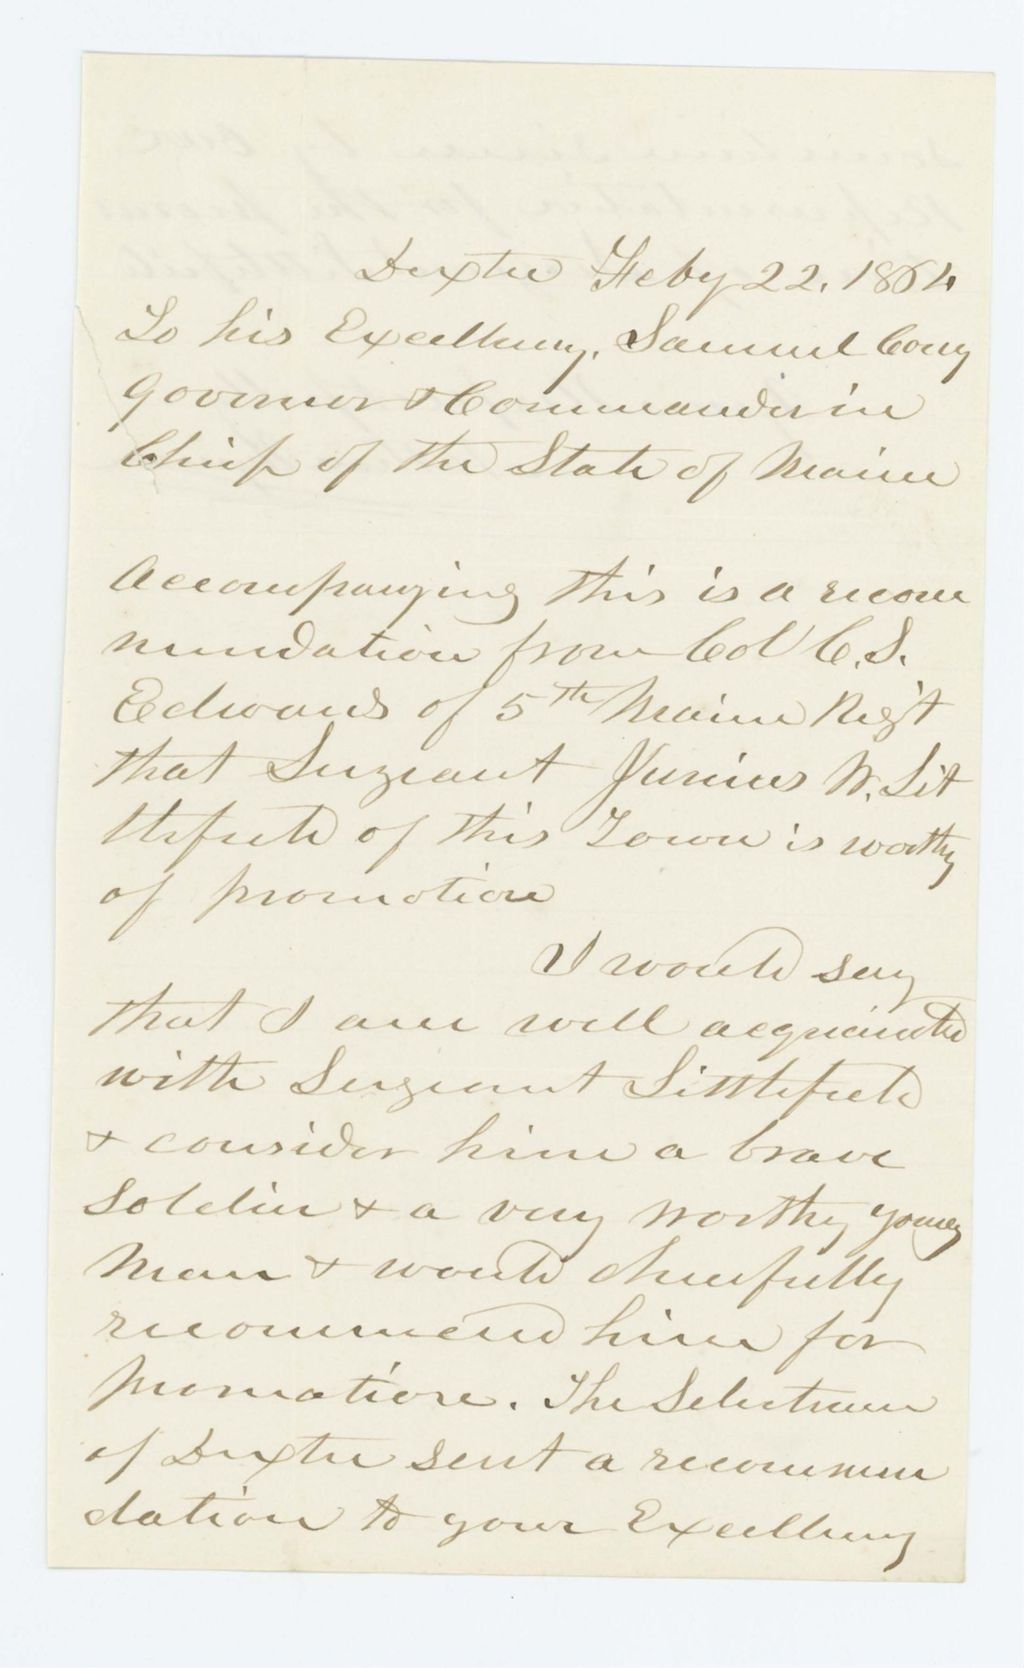 Dexter Feby 22. 1864
To his Excellency, Samuel Cony
Governor & Commander in
Chief of the State of Maine
Accompanying this is a recom
mendation from Col C.S.
Edwards of 5th Maine Regt
that Sergeant Junius W. Lit
tlefield of this Town is worthy
of promotion
I would say
that I am well acquainted
with Sergeant Littlefield
& consider him a brave
Soldier & a very worthy young
man & would cheerfully
recommend him for
promotion. The Selectmen
of Dexter sent a recommen
dation to your Excellency